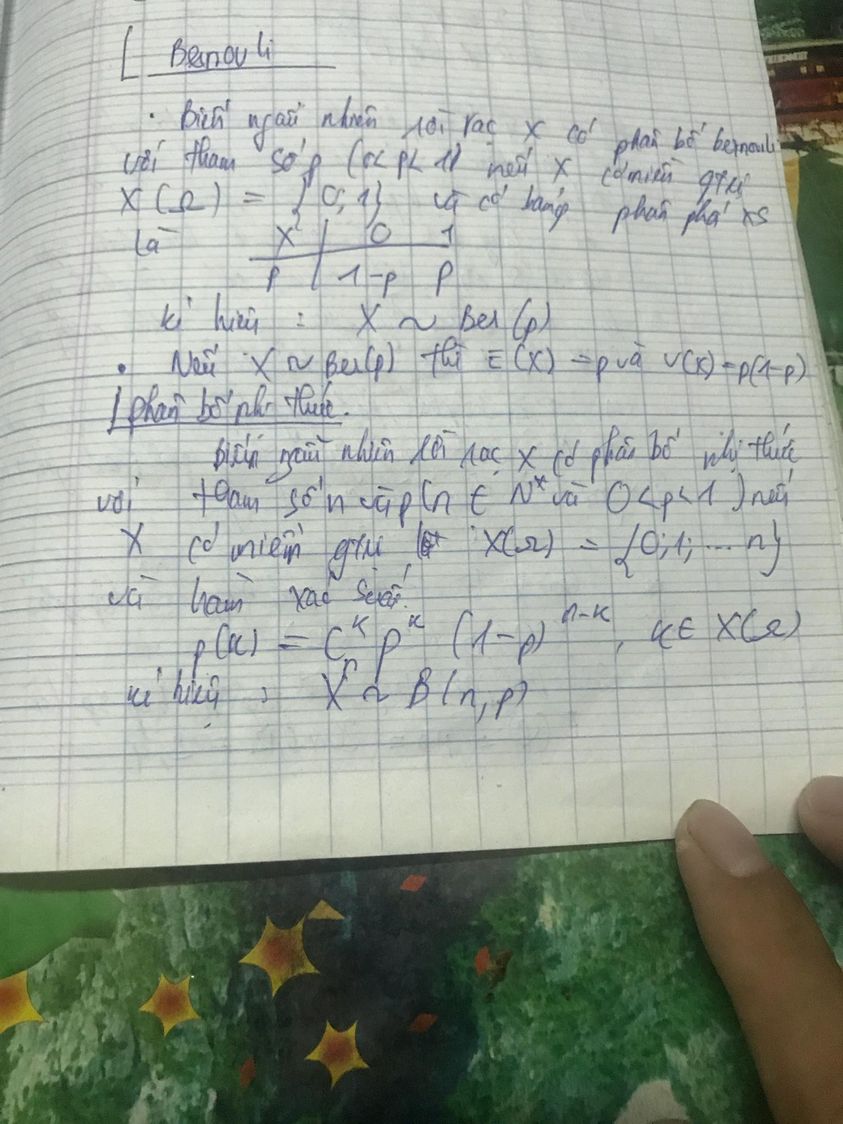 Bernouli
• Biến ngẫu nhiên rời rạc X có phân bố bernouli
với tham số p (0< p< 1) nếu X có miền gtrị
X(Ω) = {0; 1} và có bảng phân phối xs
là X | 0 1
P | 1-p p
kí hiệu : X ~ Ber(p)
• Nếu X ~ Ber(p) thì E(X) = p và V(X) = p(1-p)
phân bố nhị thức.
Biến ngẫu nhiên rời rạc X có phân bố nhị thức
với tham số n và p (n ∈ N* và 0<p<1) nếu
X có miền gtrị X(Ω) = {0; 1; ... n}
và hàm xác suất.
p(k) = C_n^k p^k (1-p)^{n-k}, k ∈ X(Ω)
kí hiệu : X ~ B(n,p)